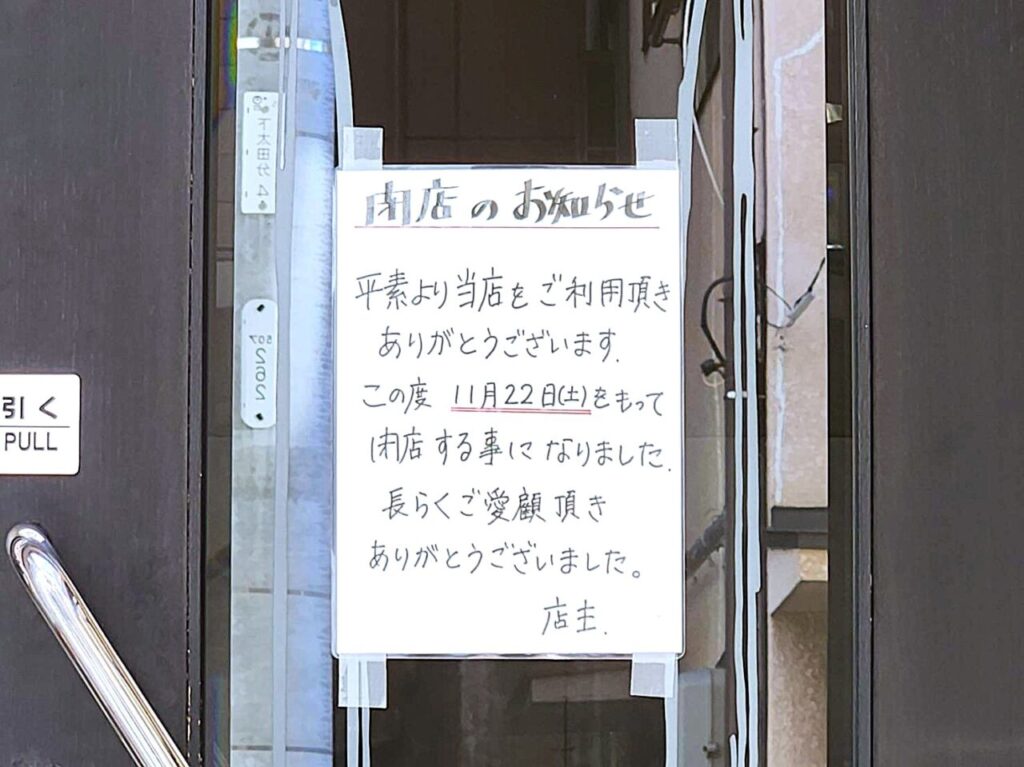 閉店のお知らせ
平素より当店をご利用頂き
ありがとうございます.
この度 11月22日(土)をもって
閉店する事になりました.
長らくご愛顧頂き
ありがとうございました。
店主.
引く
PULL
下太田分4
507
2622